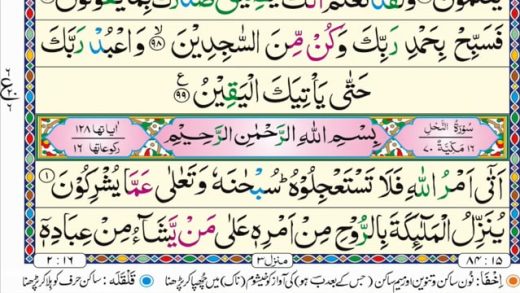 يَعْلَمُوْنَ ۝ وَلَقَدْ نَعْلَمُ اَنَّكَ يَضِيْقُ صَدْرُكَ بِمَا يَقُوْلُوْنَ
فَسَبِّحْ بِحَمْدِ رَبِّكَ وَكُنْ مِّنَ السّٰجِدِيْنَ ۙ۝۹۸ وَاعْبُدْ رَبَّكَ
حَتّٰى يَاْتِيَكَ الْيَقِيْنُ ۝۹۹ ع
سُوْرَةُ النَّحْلِ ۱۶ مَكِّيَّةٌ ۷۰ بِسْمِ اللّٰهِ الرَّحْمٰنِ الرَّحِيْمِ اٰيَاتُهَا ۱۲۸ رُكُوْعَاتُهَا ۱۶
اَتٰٓى اَمْرُ اللّٰهِ فَلَا تَسْتَعْجِلُوْهُ ؕ سُبْحٰنَهٗ وَتَعٰلٰى عَمَّا يُشْرِكُوْنَ ۝۱
يُنَزِّلُ الْمَلٰٓئِكَةَ بِالرُّوْحِ مِنْ اَمْرِهٖ عَلٰى مَنْ يَّشَآءُ مِنْ عِبَادِهٖٓ
۱۵ : ۸۳ منزل ۳ ۱۶ : ۲
اِخفَا: نُون ساکن و تنوین اور میم ساکن (جس کے بعد ب ہو) کی آواز کو خیشوم (ناک) میں چھپا کر پڑھنا قَلقَلَہ: ساکن حرف کو ہلا کر پڑھنا